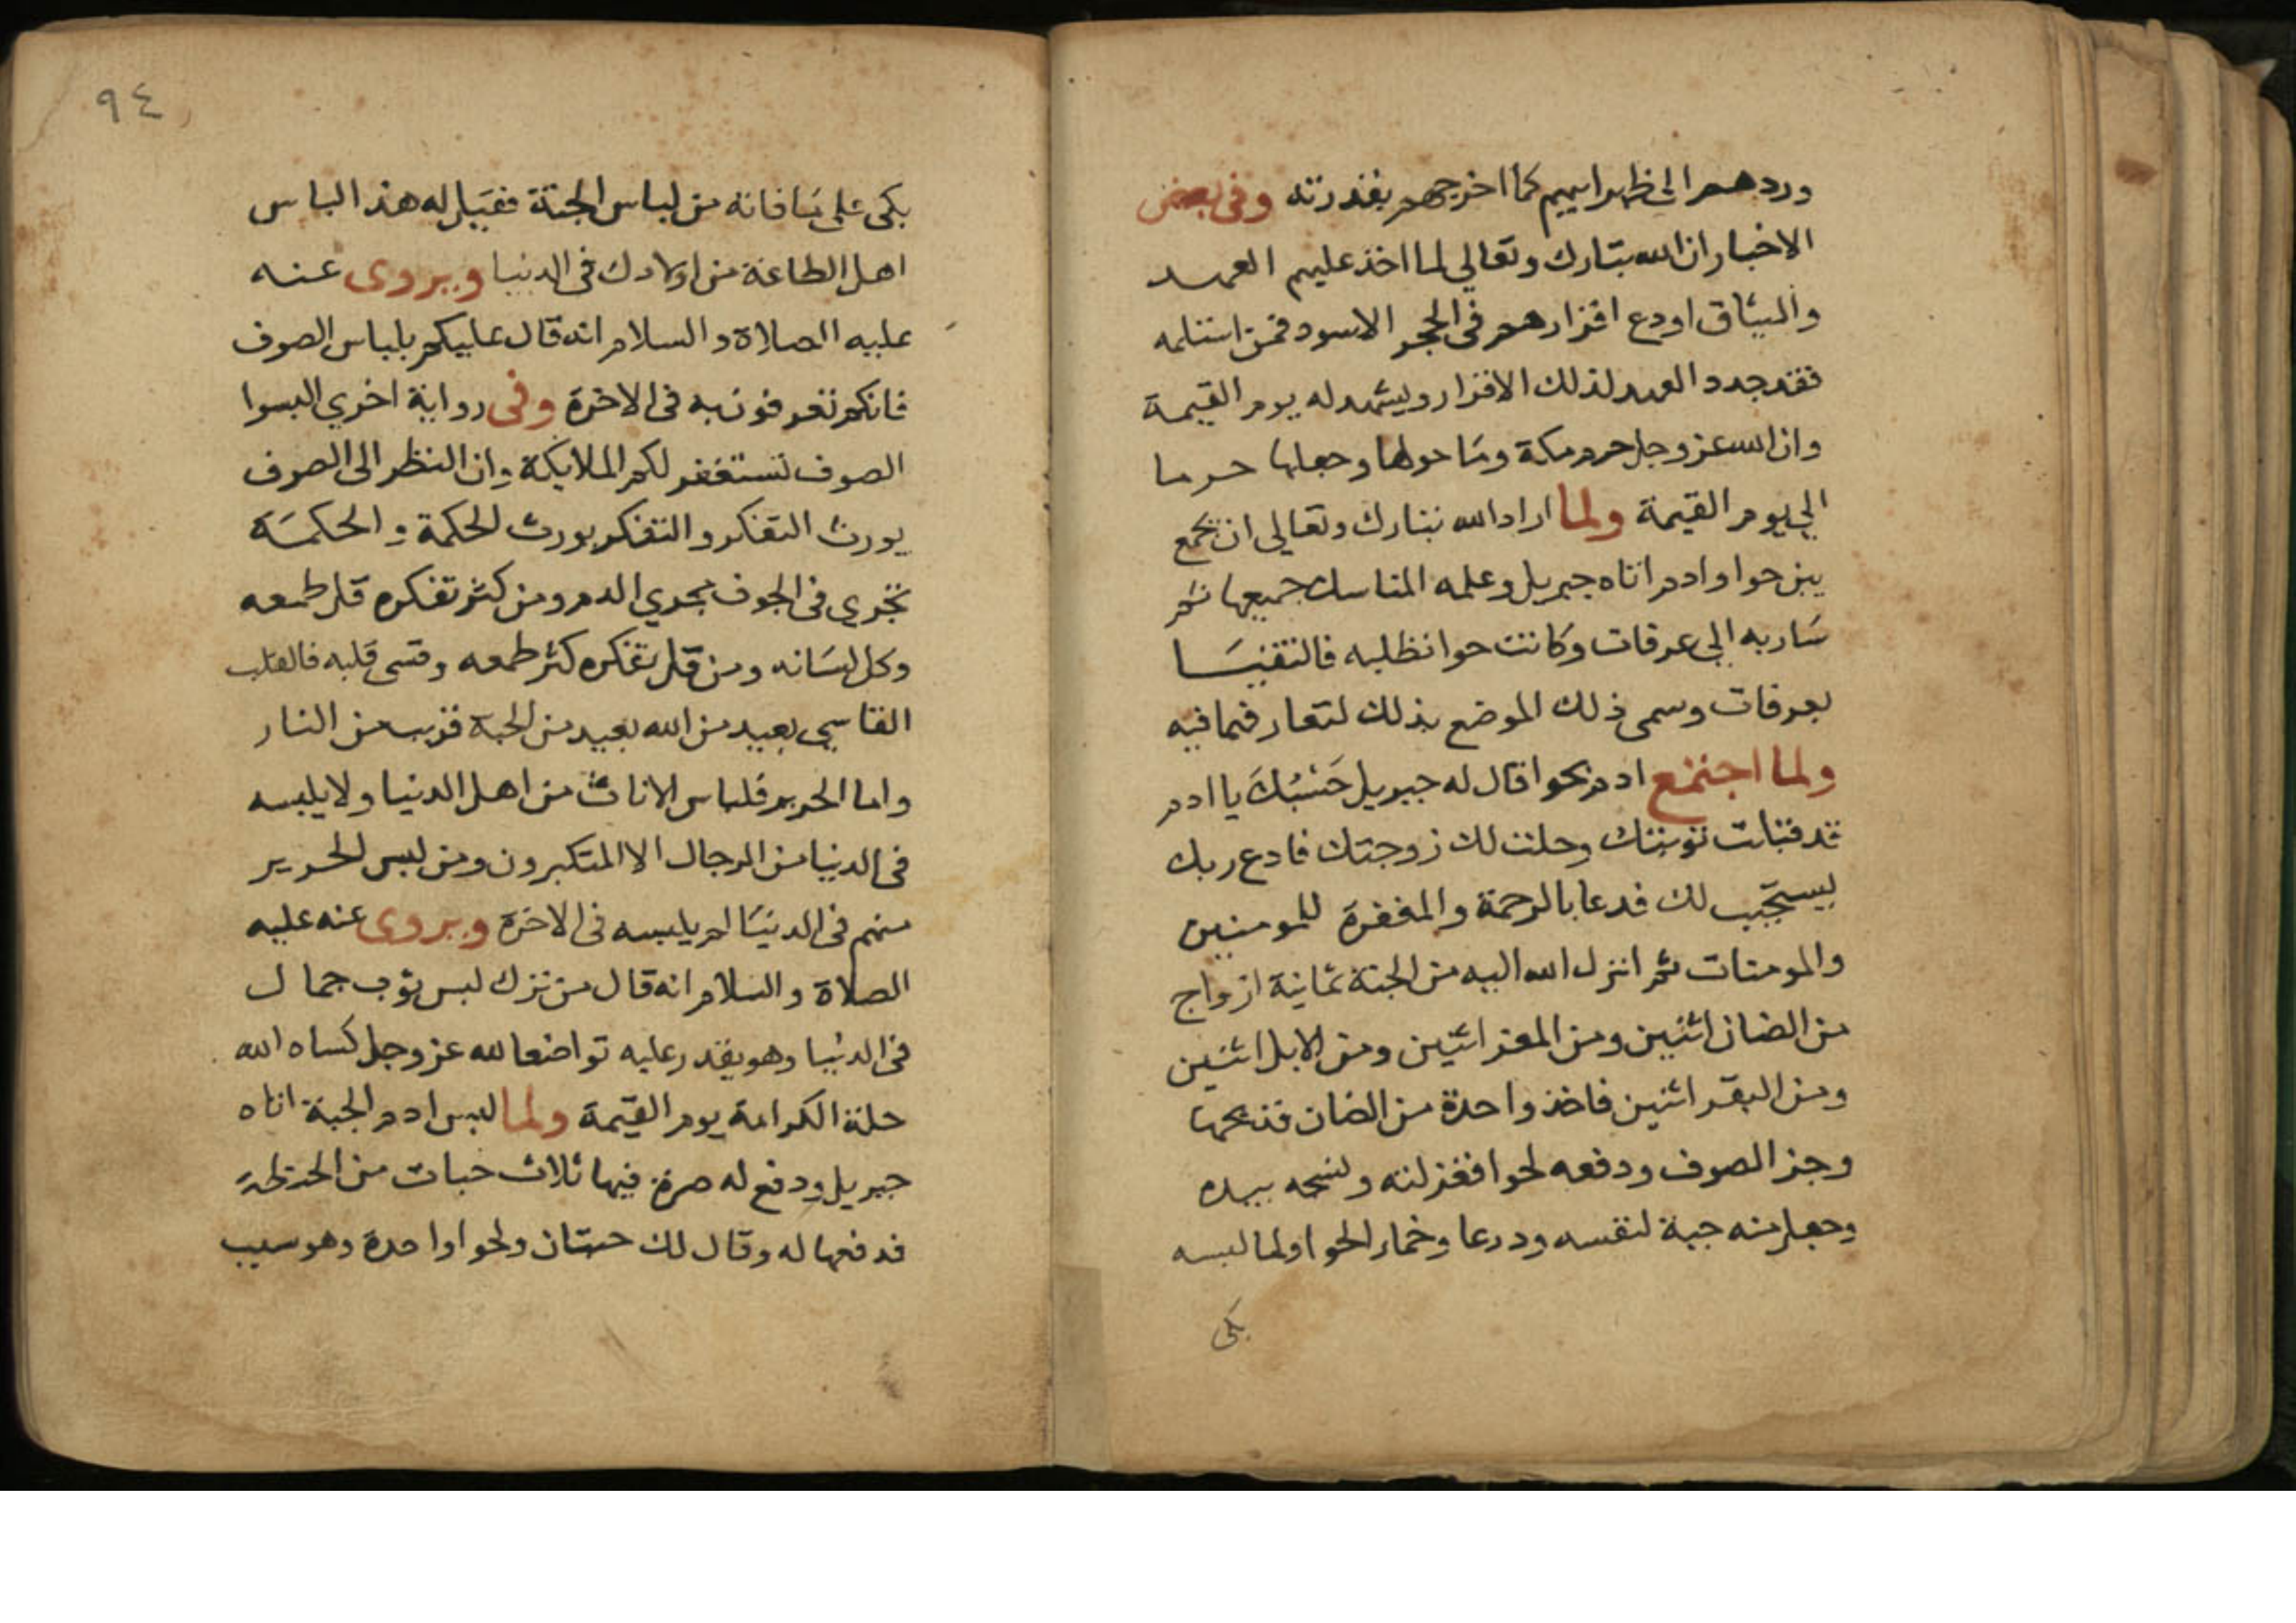 وردهم الى ظهر ابيهم كما اخرجهم بقدرته وفى بعض
الاخبار ان الله تبارك وتعالي لما اخذ عليهم العهد
والميثاق اودع اقرارهم فى الحجر الاسود فمن استلمه
فقد جدد العهد لذلك الاقرار ويشهد له يوم القيمة
وان الله عز وجل حرم مكة وما حولها وجعلها حرما
الي يوم القيمة ولما اراد الله تبارك وتعالى ان يجمع
بين حوا وادم اتاه جبريل وعلمه المناسك جميعها ثم
سار به الي عرفات وكانت حوا تطلبه فالتقيا
بعرفات وسمى ذلك الموضع بذلك لتعارفهما فيه
ولما اجتمع ادم بحوا قال له جبريل حسبك يا ادم
قد قبلت توبتك وحلت لك زوجتك فادع ربك
ليستجيب لك فدعا بالرحمة والمغفرة للمومنين
والمومنات ثم انزل الله اليه من الجنة ثمانية ازواج
من الضان اثنين ومن المعز اثنين ومن الابل اثنين
ومن البقر اثنين فاخذ واحدة من الضان فذبحها
وجز الصوف ودفعه لحوا فغزلته ونسجه بيده
وجعل منه جبة لنفسه ودرعا وخمار لحوا ولما لبسه
بكى
٩٤
بكى على ما فاته من لباس الجنة فقيل له هذا لباس
اهل الطاعة من اولادك فى الدنيا ويروى عنه
عليه الصلاة والسلام انه قال عليكم بلباس الصوف
فانكم تعرفون به فى الاخرة وفى رواية اخري البسوا
الصوف تستغفر لكم الملايكة وان النظر الى الصوف
يورث التفكر والتفكر يورث الحكمة والحكمة
تجري فى الجوف مجري الدم ومن كثر تفكره قل طمعه
وكل لسانه ومن قل تفكره كثر طمعه وقسى قلبه فالقلب
القاسي بعيد من الله بعيد من الجنة قريب من النار
واما الحرير فلباس الاناث من اهل الدنيا ولا يلبسه
فى الدنيا من الرجال الا المتكبرون ومن لبس الحرير
منهم فى الدنيا لم يلبسه فى الاخرة ويروى عنه عليه
الصلاة والسلام انه قال من ترك لبس ثوب جمال
فى الدنيا وهو يقدر عليه تواضعا لله عز وجل كساه الله
حلة الكرامة يوم القيمة ولما لبس ادم الجبة اتاه
جبريل ودفع له صرة فيها ثلاث حبات من الحنطة
فدفعها له وقال لك حبتان ولحوا واحدة وهو سبب